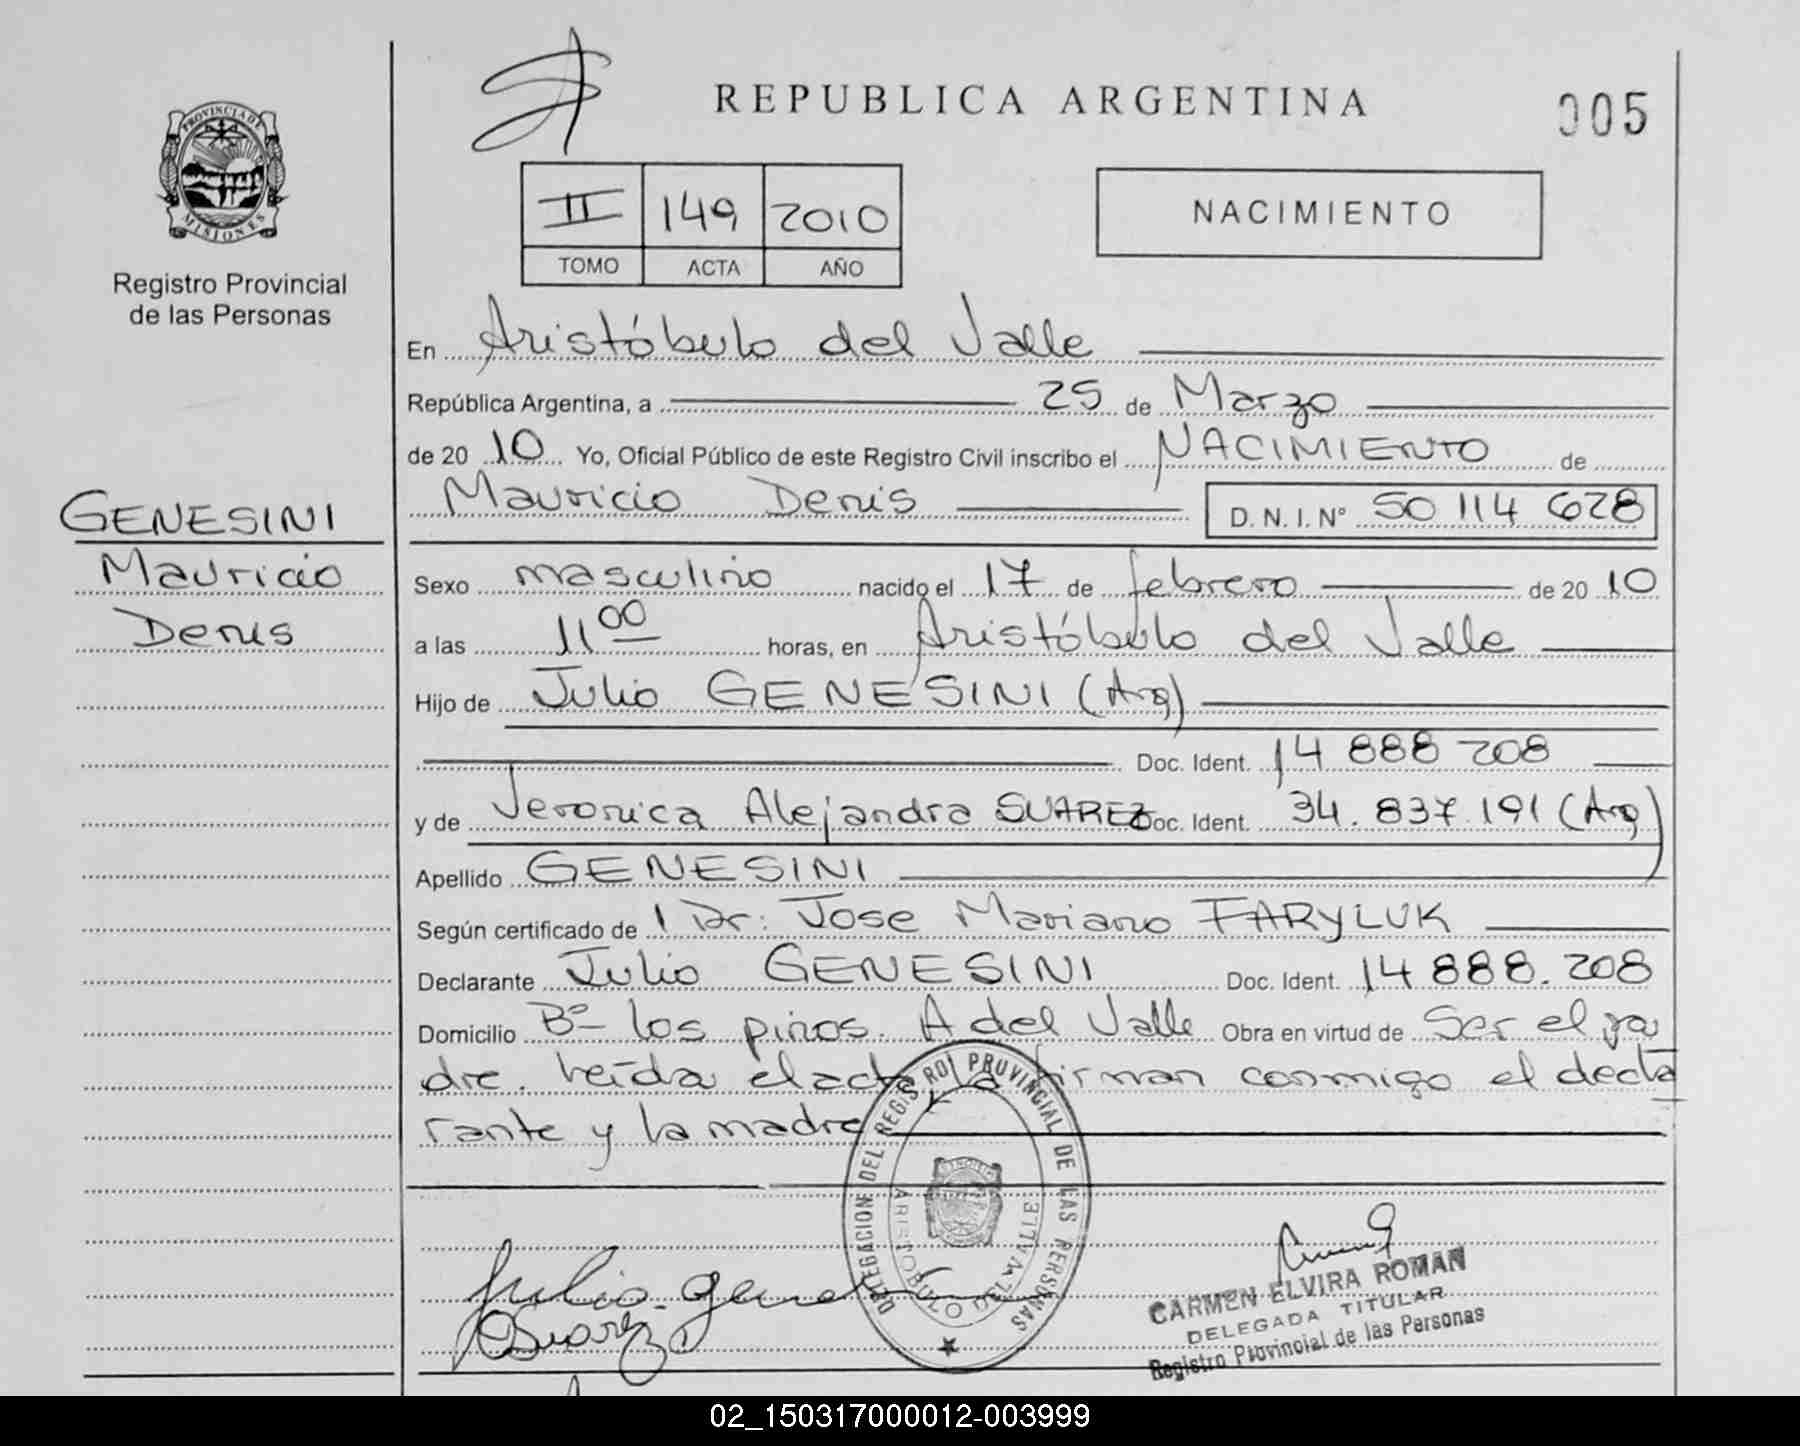 REPUBLICA ARGENTINA
005
PROVINCIA DE MISIONES
Registro Provincial
de las Personas
II 149 2010
TOMO ACTA AÑO
NACIMIENTO
En Aristóbulo del Valle
República Argentina, a 25 de Marzo
de 2010 Yo, Oficial Público de este Registro Civil inscribo el NACIMIENTO de
Mauricio Denis D.N.I. Nº 50 114 628
GENESINI
Mauricio
Denis
Sexo masculino nacido el 17 de febrero de 2010
a las 11 00 horas, en Aristóbulo del Valle
Hijo de Julio GENESINI (Arg)
Doc. Ident. 14 888 208
y de Veronica Alejandra SUAREZ Doc. Ident. 34.837.191 (Arg)
Apellido GENESINI
Según certificado de Dr: Jose Mariano FARYLUK
Declarante Julio GENESINI Doc. Ident. 14 888.208
Domicilio Bº los pinos. A del Valle Obra en virtud de Ser el pa
dre. leída el acta la firman conmigo el decla
rante y la madre
DELEGACION DEL REGISTRO PROVINCIAL DE LAS PERSONAS
ARISTOBULO DEL VALLE
Julio
Suarez
CARMEN ELVIRA ROMAN
DELEGADA TITULAR
Registro Provincial de las Personas
02_150317000012-003999